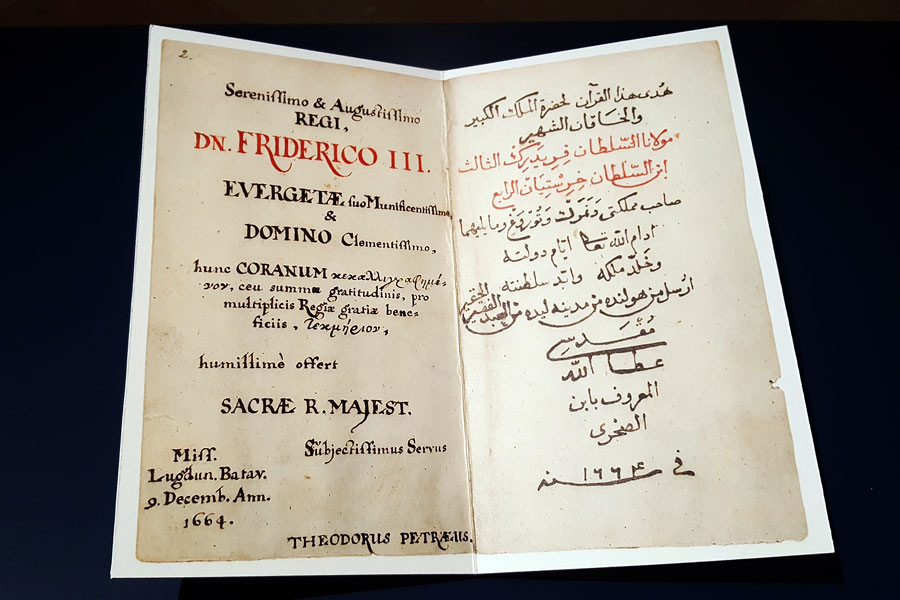 2.
Sereniſſimo & Auguſtiſſimo
REGI,
DN. FRIDERICO III.
EVERGETÆ suo Munificentiſſimo,
&
DOMINO Clementiſſimo,
hunc CORANUM κεκαλλιγραφημέ-
νον, ceu summæ gratitudinis, pro
multiplicis Regiæ gratiæ bene-
ficiis, τεκμήριον,
humillimè offert
SACRÆ R. MAJEST.
Subjectiſſimus Servus
Miſſ.
Lugdun. Batav.
9. Decemb. Ann.
1664.
THEODORUS PETRÆUS.
هُدى هذا القرآن لحضرة الملك الكبير
والخاقان الشهير
مولانا السّلطان فريدريك الثالث
ابن السّلطان خرستيان الرابع
صاحب مملكتى دنمرك ونُوروغ وما يليهما
ادام الله تعالى ايّام دولته
وخلّد ملكه وابّد سلطنته
أرسل من هولنده من مدينه ليده من العبد الفقير الحقير
مُقْدسي
عطا الله
المعروف بابن
الصخرى
في سنه ١٦٦٤